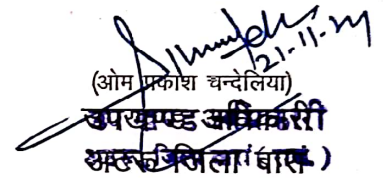 21-11-24
(ओम प्रकाश चन्देलिया)
उपखण्ड अधिकारी
अटरू जिला बारां